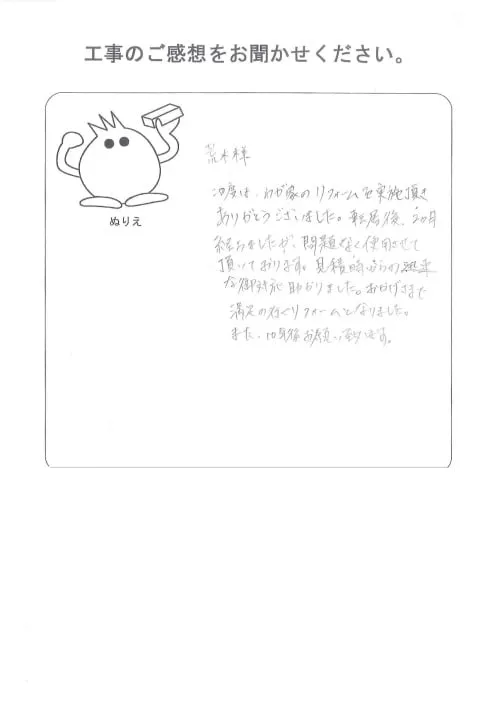 工事のご感想をお聞かせください。
ぬりえ
荒木様
この度は、わが家のリフォームを実施頂き
ありがとうございました。転居後、2カ月
経ちましたが、問題なく使用させて
頂いております。見積時からの迅速
な御対応助かりました。おかげさまで
満足のいくリフォームとなりました。
また、10年後お願い致します。